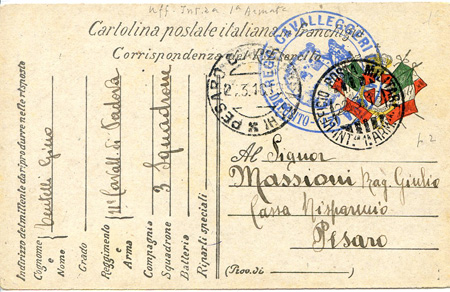 Uff. Int.za 1ª Armata
Cartolina postale italiana in franchigia
Corrispondenza del R. Esercito
REGG. CAVALLEGGERI
DEPOSITO
PESARO
2.3.16
UFFICIO POSTA MILITARE
INT. 1 ARMATA
Indirizzo del mittente da riprodurre nelle risposte
Cognome e Nome Gino
Grado
Reggimento e Arma Cavall. di Padova
Compagnia
Squadrone 3 Squadrone
Batteria
Riparti speciali
Al Signor
Massioni Rag. Giulio
Cassa Risparmio
Pesaro
(Prov. di )